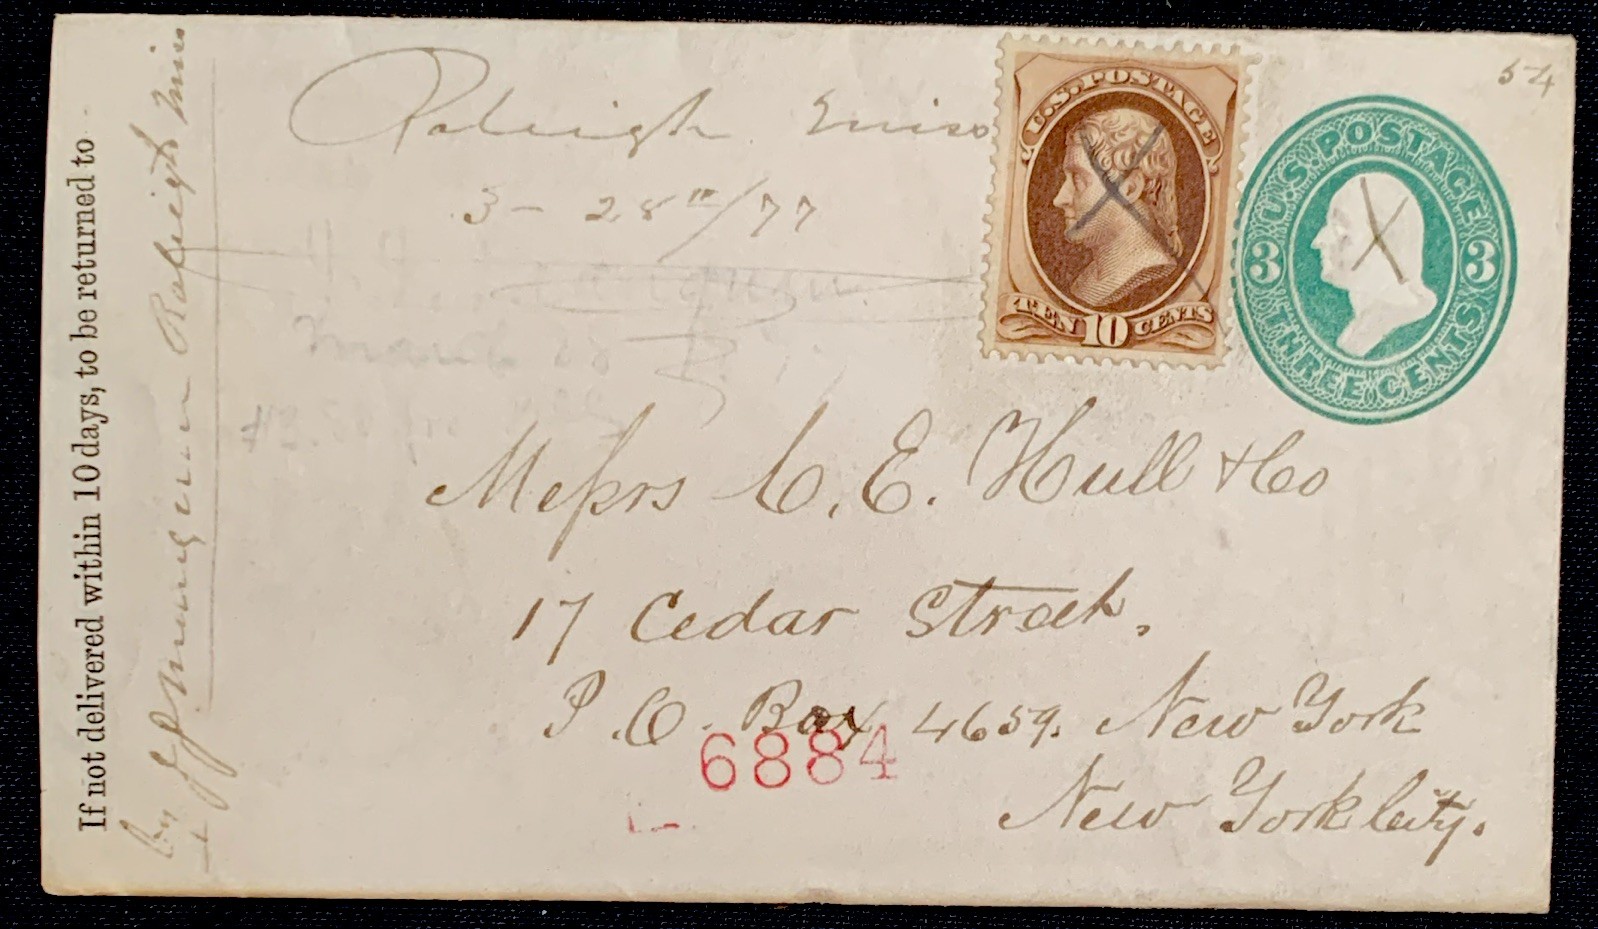 Raleigh Miss
3 - 28"/77
54
U.S. POSTAGE
TEN 10 CENTS
U.S. POSTAGE
3 3
THREE CENTS
Messrs C. E. Hull & Co
17 Cedar Street.
P.O. Box 4659. New York
New York City.
6884
If not delivered within 10 days, to be returned to
Raleigh Miss